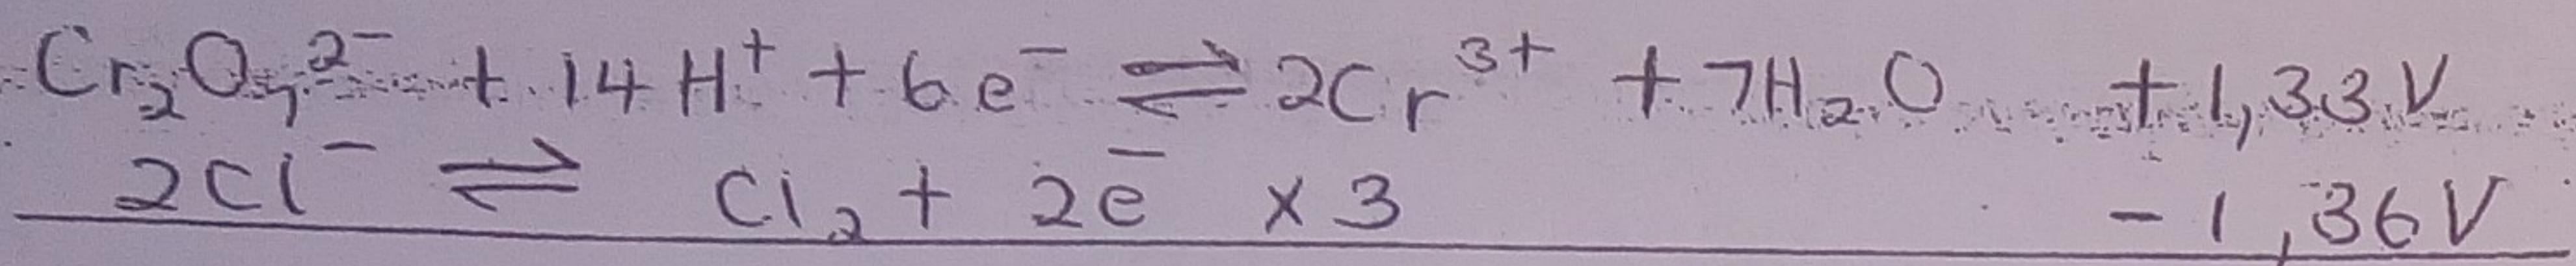 Cr₂O₇²⁻ + 14H⁺ + 6e⁻ ⇌ 2Cr³⁺ + 7H₂O +1,33V
2Cl⁻ ⇌ Cl₂ + 2e⁻ x 3 -1,36V